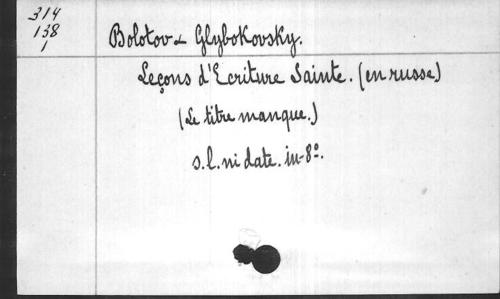 314
138
1
Bolotov & Glybokovsky.
Leçons d'Ecriture Sainte. (en russe)
(Le titre manque.)
s.l. ni date. in-8º.